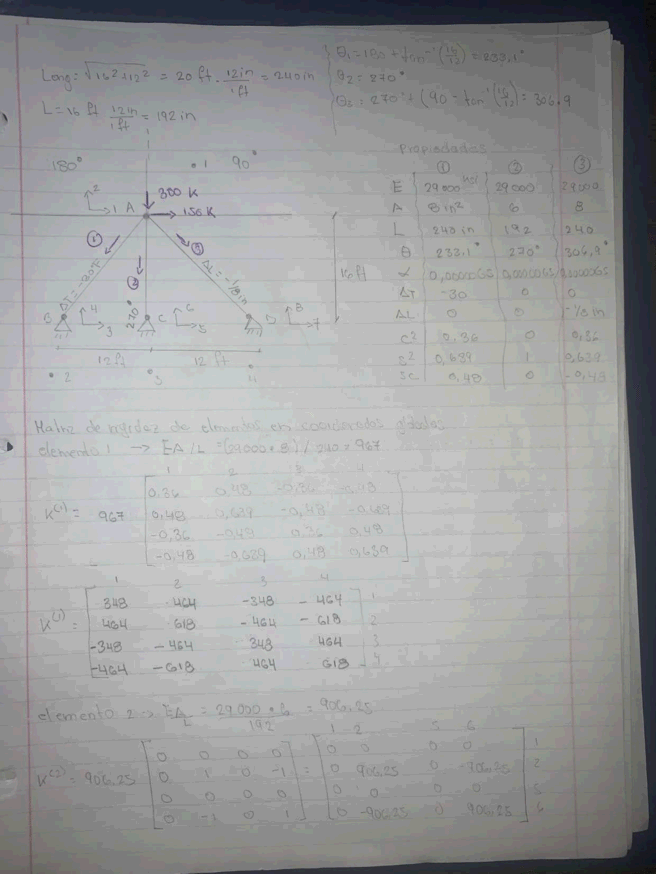 Long = √16²+12² = 20 ft · 12in/1ft = 240in
L = 16 ft 12in/1ft = 192in
θ1 = 180 + tan⁻¹(16/12) = 233,1°
θ2 = 270°
θ3 = 270° + (90 - tan⁻¹(16/12) = 306,9
180°
1 90°
2
1 A
300 K
150 K
①
②
③
ΔL = -1/8in
270°
16 ft
B
4
3
C
6
5
D
8
7
12 ft 12 ft
2
3
Propiedades
① ② ③
E 29000 29000 29000
A 8 in² 6 8
L 240 in 192 240
θ 233,1° 270° 306,9°
α 0,0000065 0,0000065 0,0000065
ΔT -30 0 0
ΔL 0 0 -1/8 in
c² 0,36 0 0,36
s² 0,639 1 0,639
sc 0,48 0 -0,48
Matriz de rigidez de elementos en coordenadas globales
elemento 1 → EA/L = (29000 * 8) / 240 = 967
1 2 3 4
K⁽¹⁾ = 967
0,36 0,48 -0,36 -0,48
0,48 0,639 -0,48 -0,639
-0,36 -0,48 0,36 0,48
-0,48 -0,639 0,48 0,639
1 2 3 4
K⁽¹⁾ =
348 464 -348 -464 1
464 618 -464 -618 2
-348 -464 348 464 3
-464 -618 464 618 4
elemento 2 → EA/L = 29000 * 6 / 192 = 906,25
1 2 5 6
K⁽²⁾ = 906,25
0 0 0 0 = 0 0 0 0 1
0 1 0 -1 0 906,25 0 -906,25 2
0 0 0 0 0 0 0 0 5
0 -1 0 1 0 -906,25 0 906,25 6